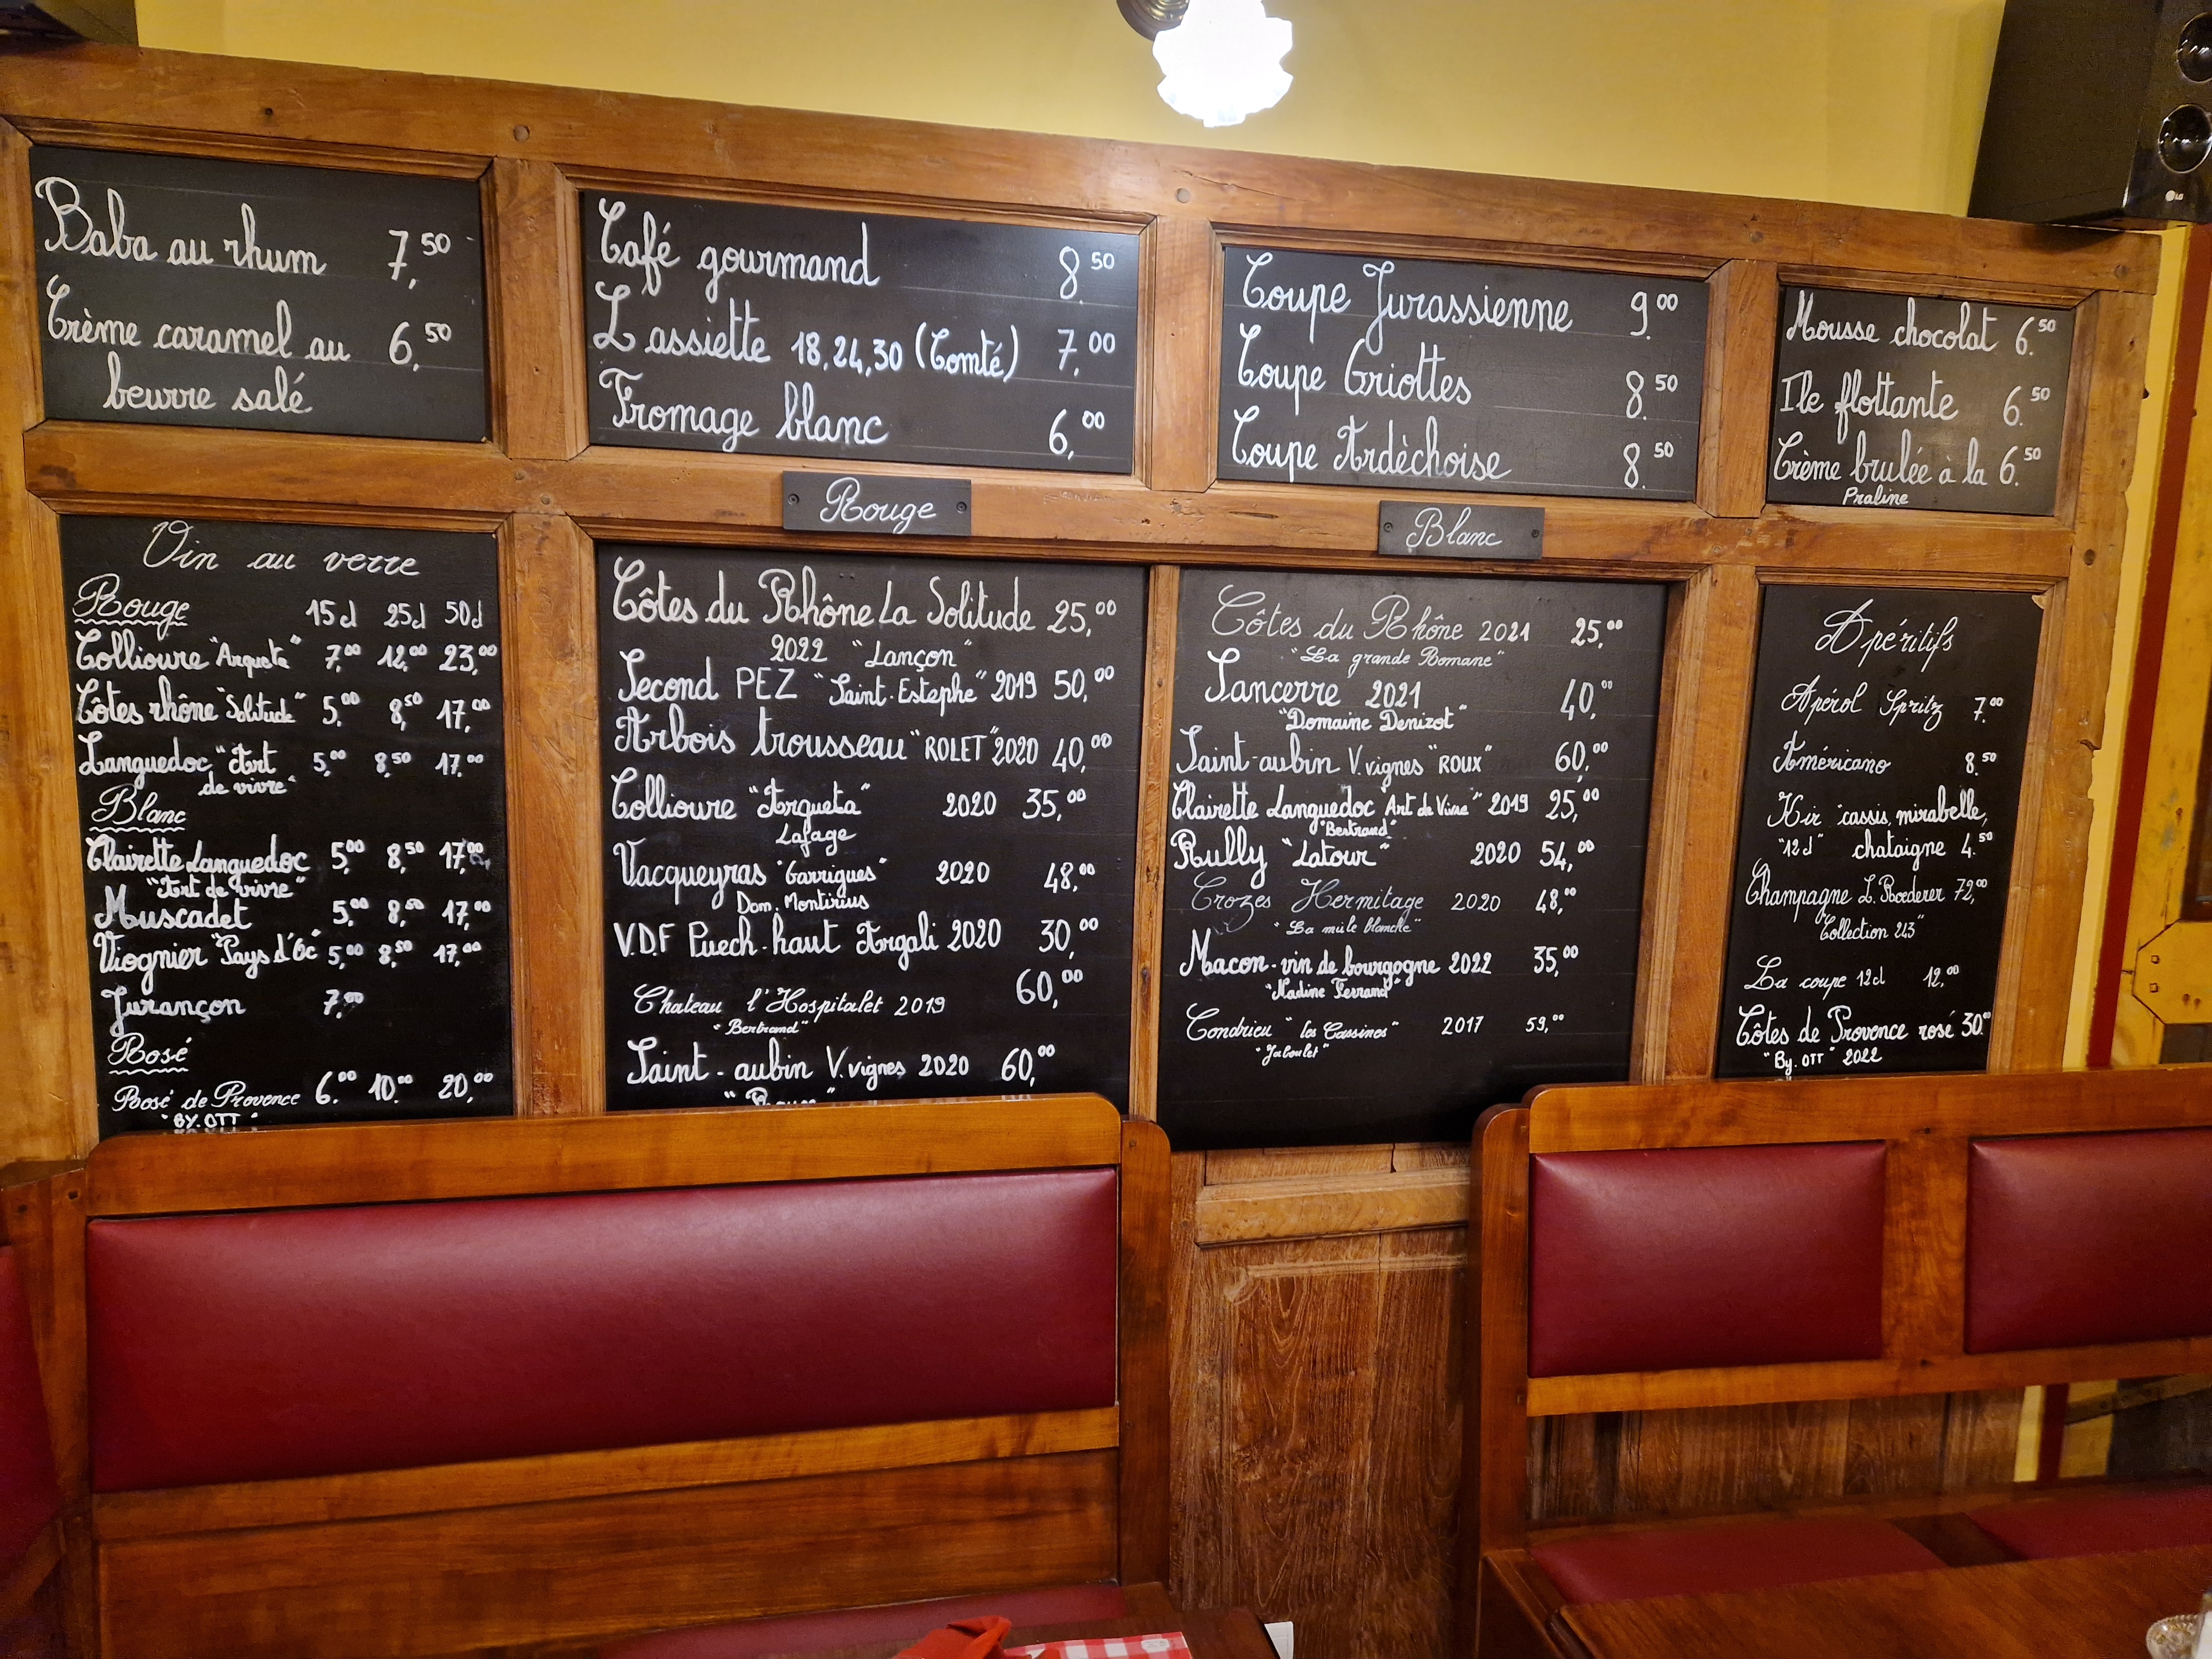 Baba au rhum 7,50
Crème caramel au 6,50
beurre salé
Café gourmand 8.50
L assiette 18,24,30 (Comté) 7,00
Fromage blanc 6,00
Coupe Jurassienne 9.00
Coupe Griottes 8.50
Coupe Ardèchoise 8.50
Mousse chocolat 6.50
Ile flottante 6.50
Crème brulée à la 6.50
Praline
LG
Vin au verre
Rouge 15cl 25cl 50cl
Collioure "Arqueta" 7,00 12,00 23,00
Côtes rhône "Solitude" 5,00 8,50 17,00
Languedoc "Art 5,00 8,50 17,00
de vivre"
Blanc
Clairette Languedoc 5,00 8,50 17,00
"Art de vivre"
Muscadet 5,00 8,50 17,00
Viognier "Pays d'Oc" 5,00 8,50 17,00
Jurançon 7,00
Rosé
Rosé de Provence 6.00 10.00 20,00
"BY.OTT"
Rouge
Côtes du Rhône La Solitude 25,00
2022 "Lançon"
Second PEZ "Saint-Estephe" 2019 50,00
Arbois trousseau "ROLET" 2020 40,00
Collioure "Arqueta" 2020 35,00
Lafage
Vacqueyras "Garrigues" 2020 48,00
Dom. Montirius
V.D.F Puech-haut Argali 2020 30,00
Chateau l'Hospitalet 2019 60,00
"Bertrand"
Saint-aubin V.vignes 2020 60,00
Blanc
Côtes du Rhône 2021 25,00
"La grande Romane"
Sancerre 2021 40,00
"Domaine Denizot"
Saint-aubin V.vignes "ROUX" 60,00
Clairette Languedoc "Art de Vivre" 2019 25,00
"Bertrand"
Rully "Latour" 2020 54,00
Crozes Hermitage 2020 48,00
"La mule blanche"
Macon-vin de bourgogne 2022 35,00
"Nadine Ferrand"
Condrieu "les Cassines" 2017 59,00
"Jaboulet"
Apéritifs
Apérol Spritz 7.00
Américano 8.50
Kir cassis, mirabelle,
"12cl" chataigne 4.50
Champagne L. Roederer 72,00
Collection 243"
La coupe 12cl 12,00
Côtes de Provence rosé 30.00
"By. OTT" 2022